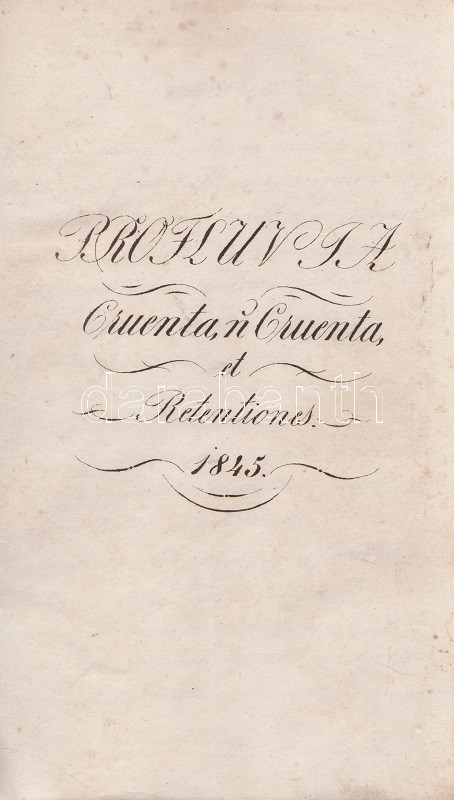 PROFLUVIA
Cruenta, n̄ Cruenta,
et
darabanth
Retentiones.
1845.